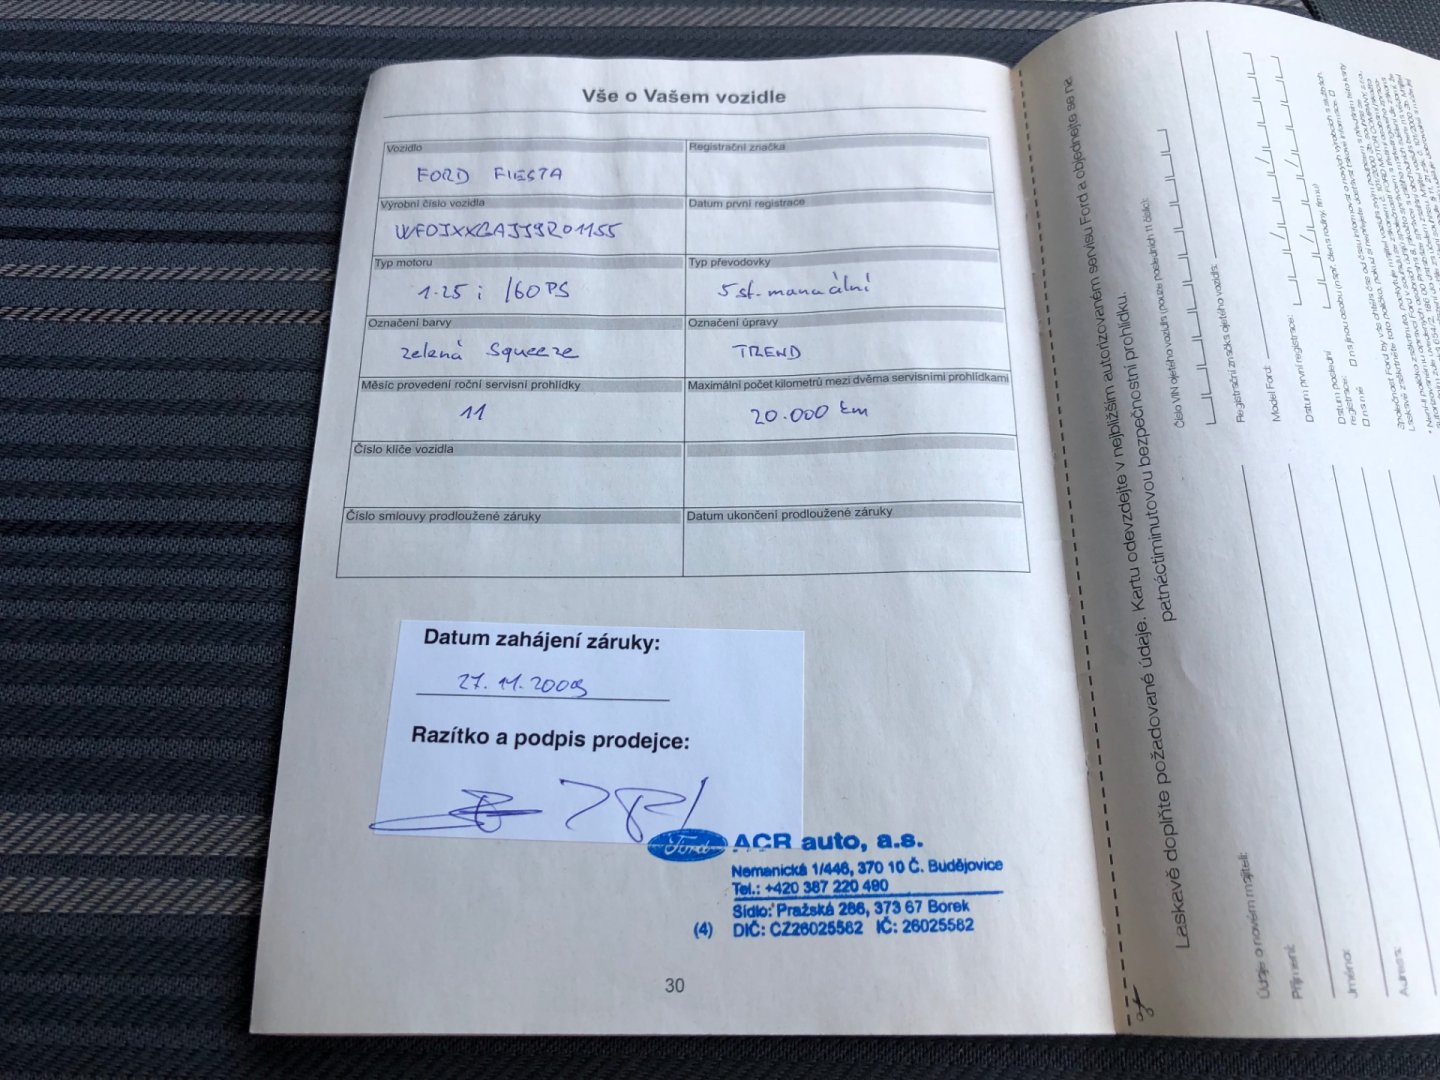 Vše o Vašem vozidle
Vozidlo
Registrační značka
FORD FIESTA
Výrobní číslo vozidla
Datum první registrace
WF0JXXGAJJ9R01155
Typ motoru
Typ převodovky
1.25 i /60PS
5 st. manuální
Označení barvy
Označení úpravy
zelená Squeeze
TREND
Měsíc provedení roční servisní prohlídky
Maximální počet kilometrů mezi dvěma servisními prohlídkami
11
20.000 km
Číslo klíče vozidla
Číslo smlouvy prodloužené záruky
Datum ukončení prodloužené záruky
Datum zahájení záruky:
27.11.2009
Razítko a podpis prodejce:
Ford
ACR auto, a.s.
Nemanická 1/446, 370 10 Č. Budějovice
Tel.: +420 387 220 490
Sídlo: Pražská 266, 373 67 Borek
(4) DIČ: CZ26025582 IČ: 26025582
30
Laskavě doplňte požadované údaje. Kartu odevzdejte v nejbližším autorizovaném servisu Ford a objednejte se na
patnáctiminutovou bezpečnostní prohlídku.
Číslo VIN ojetého vozidla (pouze posledních 11 číslic):
Registrační značka ojetého vozidla:
Model Ford:
Datum první registrace:
Datum poslední
registrace:
Údaje o novém majiteli:
Příjmení:
Jméno:
Adresa: